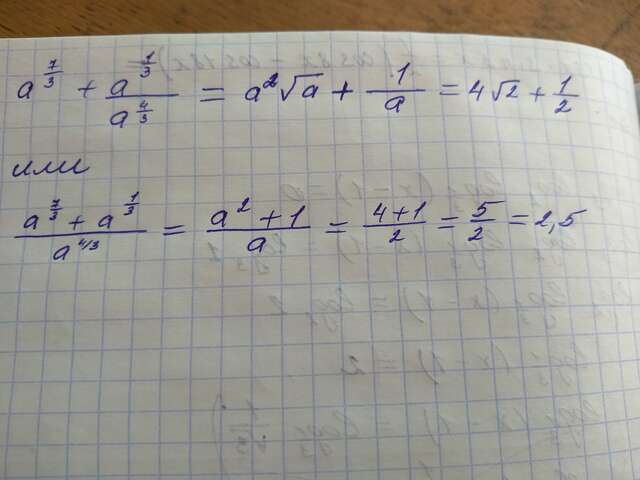 a^{7/3} + a^{1/3}/a^{4/3} = a²√a + 1/a = 4√2 + 1/2
или
(a^{7/3} + a^{1/3})/a^{4/3} = (a² + 1)/a = (4+1)/2 = 5/2 = 2,5